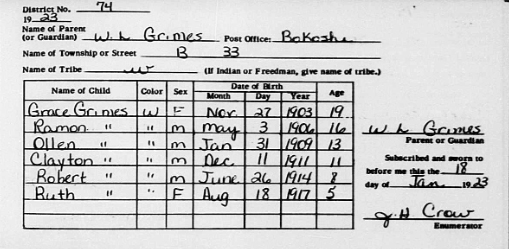 District No. 74
19 23
Name of Parent
(or Guardian) W. L. Grimes Post Office: Bokoshe
Name of Township or Street B 33
Name of Tribe W (If Indian or Freedman, give name of tribe.)
Name of Child Color Sex Date of Birth Age
Month Day Year
Grace Grimes W F Nov. 27 1903 19
Ramon " " m may 3 1906 16
Ollen " " m Jan 31 1909 13
Clayton " " m Dec. 11 1911 11
Robert " " m June 26 1914 8
Ruth " " F Aug 18 1917 5
W L Grimes
Parent or Guardian
Subscribed and sworn to
before me this the 18
day of Jan. 19 23
J. H Crow
Enumerator